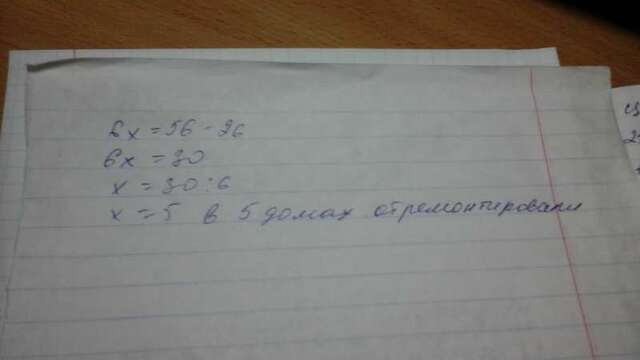 6x = 56 - 26
6x = 30
x = 30 : 6
x = 5 в 5 домах отремонтировали